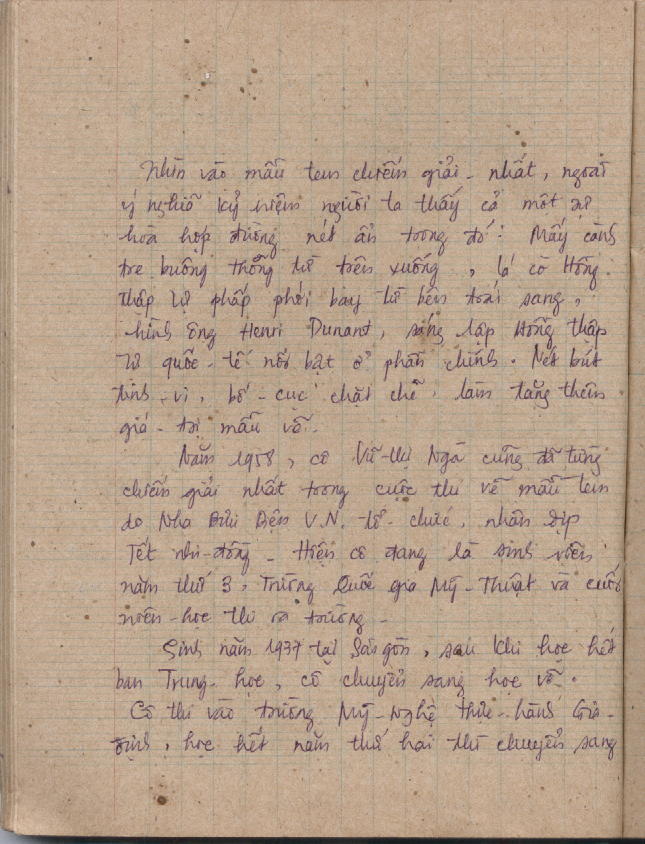 Nhìn vào mẫu tem chiếm giải - nhất, ngoài
ý nghĩa kỷ niệm người ta thấy cả một sự
hoà hợp đường nét ẩn trong đó : Mấy cành
tre buông thõng từ trên xuống, lá cờ Hồng
thập tự phấp phới bay từ bên trái sang,
hình ông Henri Dunant, sáng lập Hồng thập
tự quốc - tế nổi bật ở phần chính. Nét bút
tinh - vi, bố - cục chặt chẽ, làm tăng thêm
giá - trị mẫu vẽ.
Năm 1958, cô Vũ - thị Ngà cũng đã từng
chiếm giải nhất trong cuộc thi vẽ mẫu tem
do Nha Bưu Điện V.N. tổ - chức, nhân dịp
Tết nhi - đồng - Hiện cô đang là sinh viên
năm thứ 3, Trường Quốc gia Mỹ - Thuật và cuối
niên - học thi ra trường -
Sinh năm 1937 tại Sài gòn, sau khi học hết
ban Trung - học, cô chuyển sang học vẽ.
Cô thi vào trường Mỹ - Nghệ thực - hành Gia -
định, học hết năm thứ hai thì chuyển sang